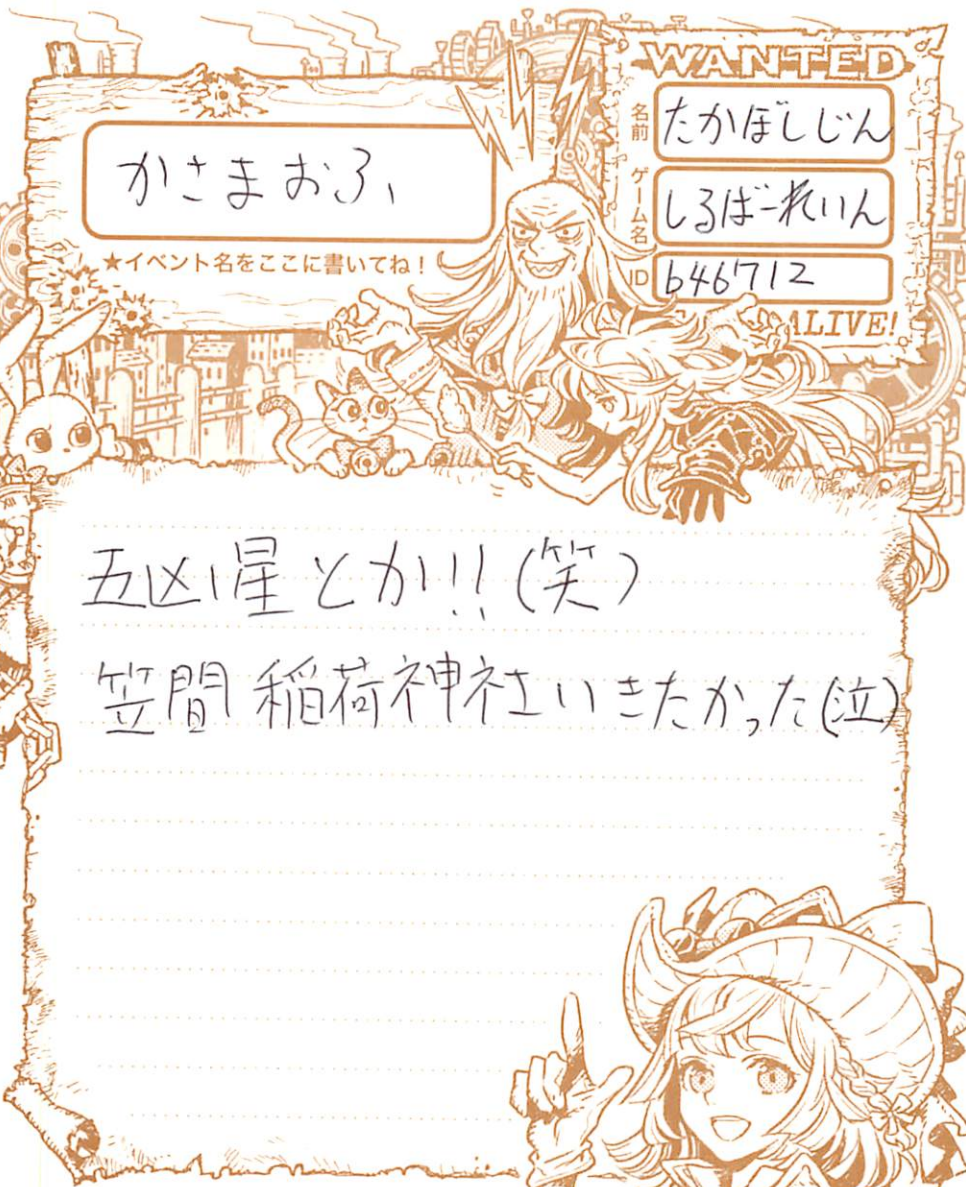 WANTED
かさまおふ
★イベント名をここに書いてね！
名前 たかぼしじん
ゲーム名 しるばーれいん
ID b46712
ALIVE!
五凶星とか!!(笑)
笠間稲荷神社いきたかった(泣)